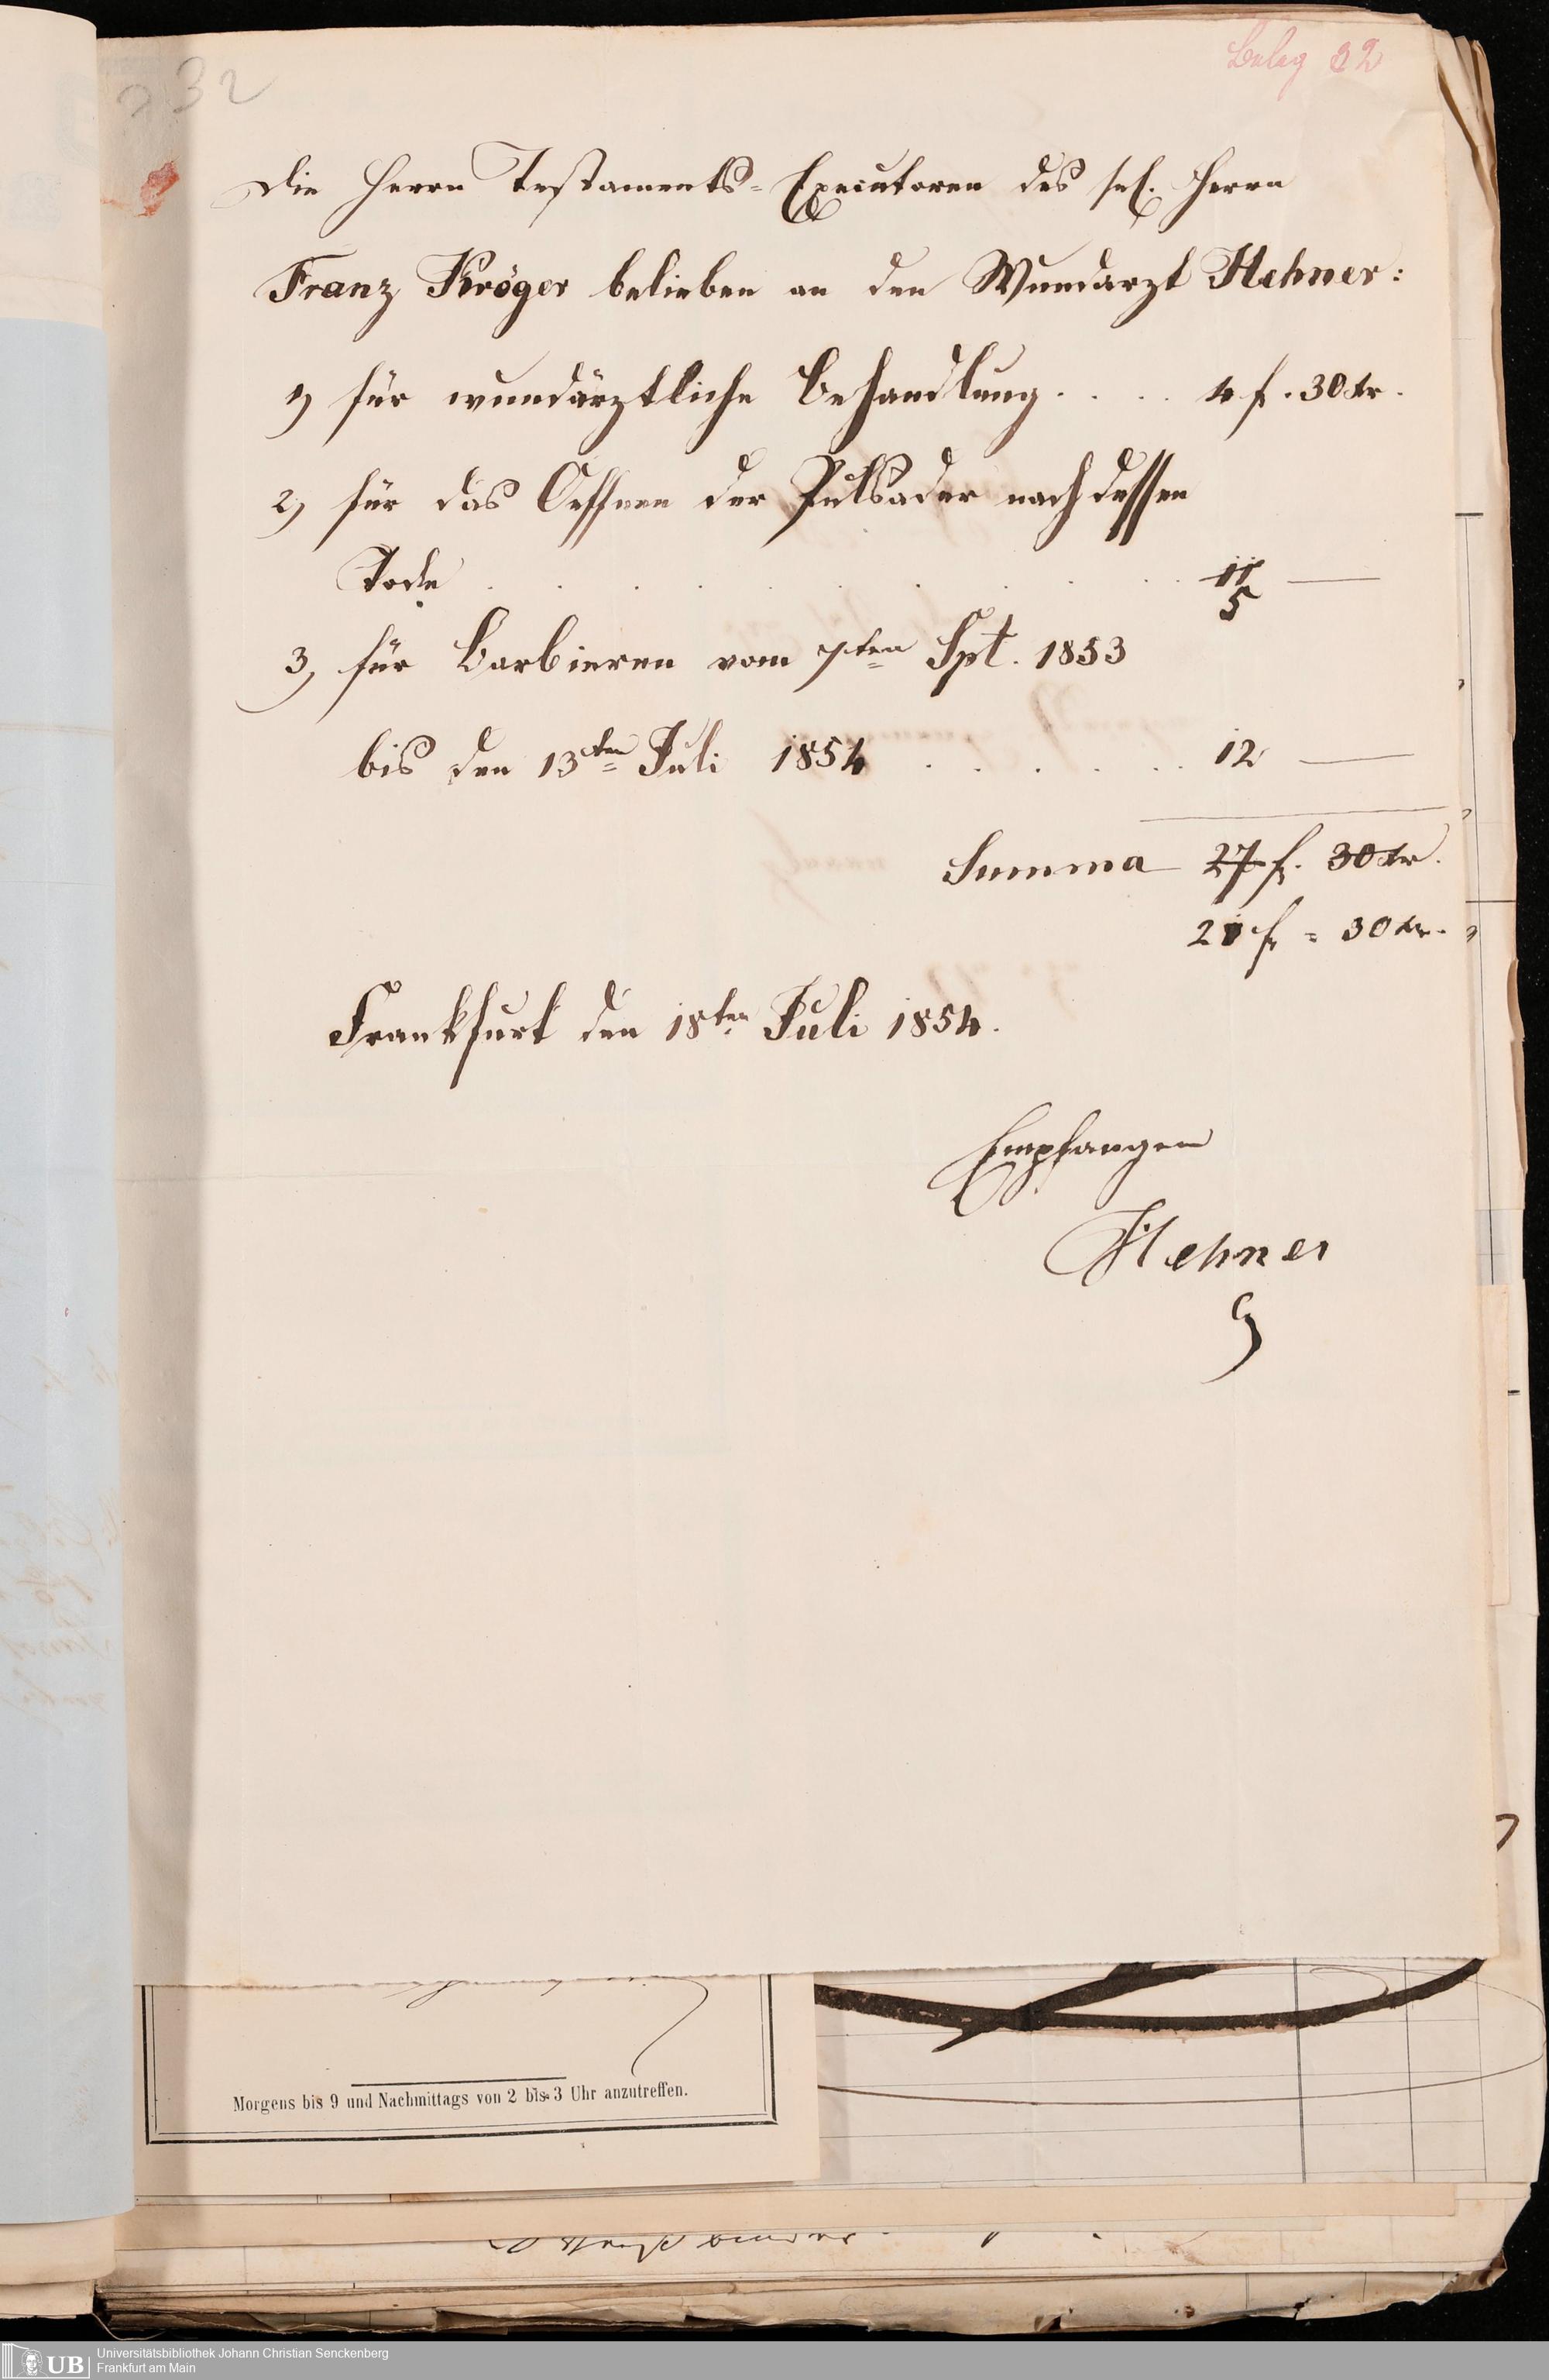 32
Beleg 32
Die Herrn Testaments-Executoren des sel. Herrn
Franz Kröger belieben an den Wundarzt Hehner:
1) für wundärztliche Behandlung . . . . 4 f. 30 kr.
2) für das Oeffnen der Pulsader nach dessen
Tode . . . . . . . . . 11 —
5
3) für Barbieren vom 7ten Spt. 1853
bis den 13ten Juli 1854 . . . . . 12 —
Summa 27 f. 30 kr.
21 f = 30 kr.
Frankfurt den 18ten Juli 1854.
Empfangen
Hehner
Morgens bis 9 und Nachmittags von 2 bis 3 Uhr anzutreffen.
UB
Universitätsbibliothek Johann Christian Senckenberg
Frankfurt am Main